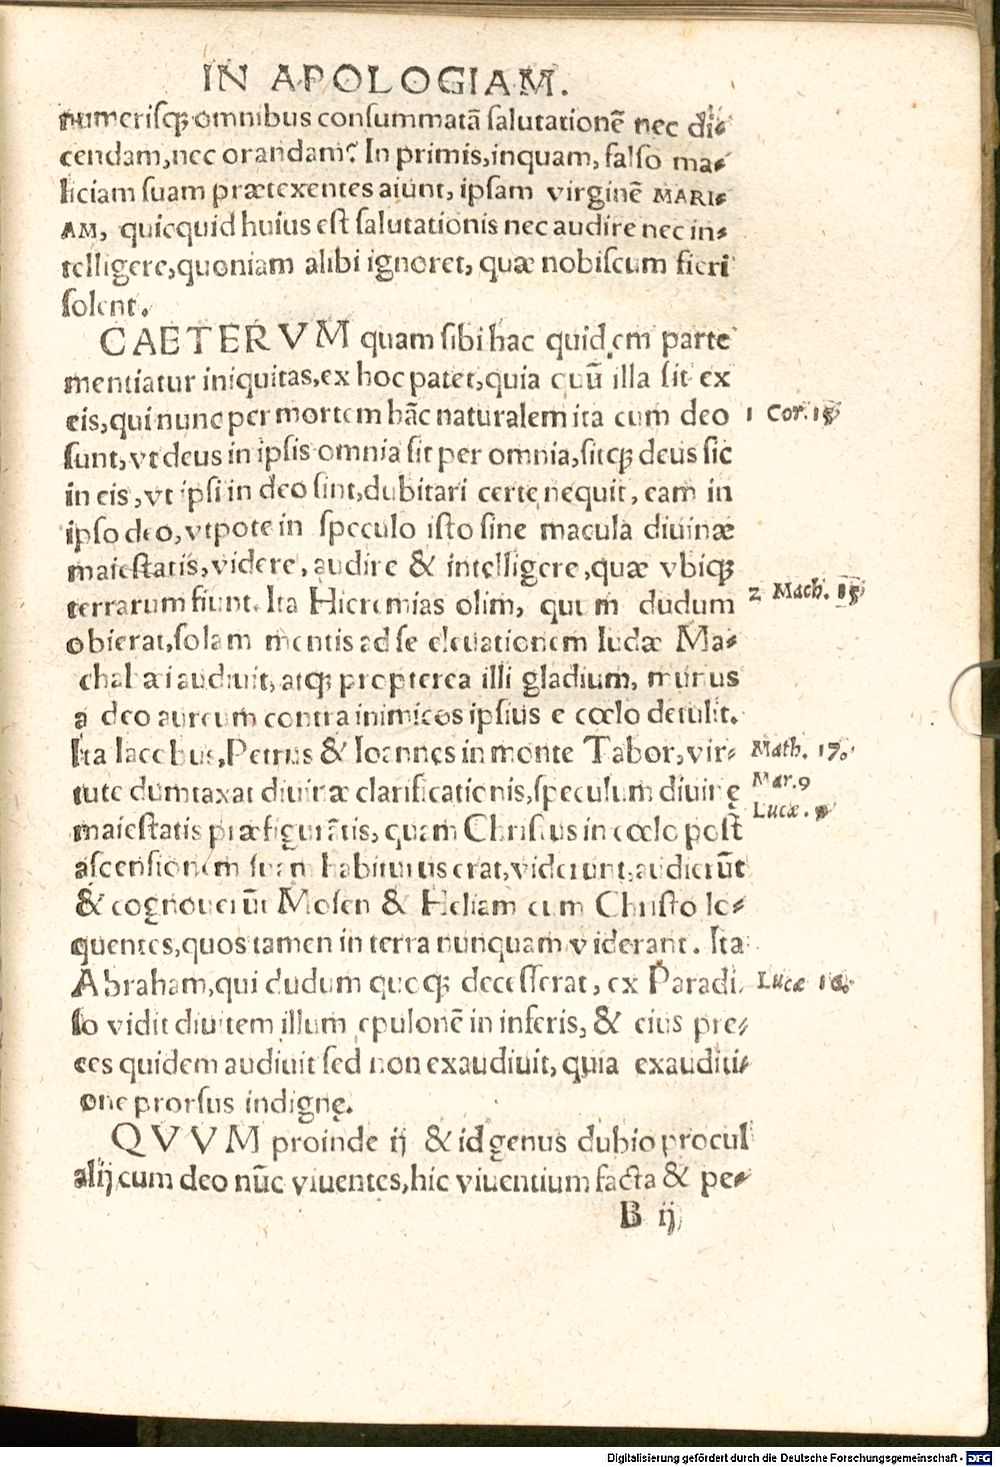 IN APOLOGIAM.
numeriſqꝫ omnibus conſummatā ſalutationē nec di⸗
cendam, nec orandam? In primis, inquam, falſo ma⸗
liciam ſuam prætexentes aiunt, ipſam virginē MARI⸗
AM, quicquid huius eſt ſalutationis nec audire nec in⸗
telligere, quoniam alibi ignoret, quæ nobiſcum fieri
ſolent.
CAETERVM quam ſibi hac quidem parte
mentiatur iniquitas, ex hoc patet, quia cuū illa ſit ex
eis, qui nunc per mortem hāc naturalem ita cum deo
1 Cor. 15
ſunt, vt deus in ipſis omnia ſit per omnia, ſitqꝫ deus ſic
in eis, vt ipſi in deo ſint, dubitari certe nequit, eam in
ipſo deo, vtpote in ſpeculo iſto ſine macula diuinæ
maieſtatis, videre, audire & intelligere, quæ vbiqꝫ
terrarum fiunt. Ita Hieremias olim, quum dudum
2 Mach. 15
obierat, ſolam mentis ad ſe eleuationem Iudæ Ma⸗
chabæi audiuit, atqꝫ propterea illi gladium, munus
a deo aureum contra inimicos ipſius e cœlo detulit.
Ita Iacobus, Petrus & Ioannes in monte Tabor, vir⸗
Math. 17.
tute dumtaxat diuinæ clarificationis, ſpeculum diuinę
Mar. 9
Lucæ. 9
maieſtatis præfigurātis, quam Chriſtus in cœlo poſt
aſcenſionem ſuam habiturus erat, viderunt, audierūt
& cognouerūt Moſen & Heliam cum Chriſto lo⸗
quentes, quos tamen in terra nunquam viderant. Ita
Abraham, qui dudum quoqꝫ deceſſerat, ex Paradi
Lucæ 16.
ſo vidit diuitem illum epulonē in inferis, & eius pre⸗
ces quidem audiuit ſed non exaudiuit, quia exauditi⸗
one prorſus indignę.
QVVM proinde ij & id genus dubio procul
alij cum deo nūc viuentes, hic viuentium facta & pe⸗
B ij
Digitalisierung gefördert durch die Deutsche Forschungsgemeinschaft - DFG